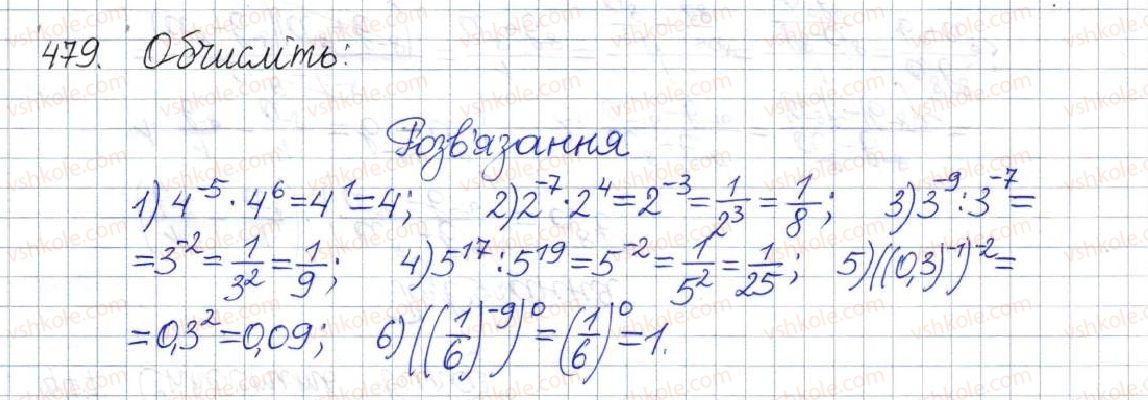 479. Обчисліть:
Розв'язання
1) 4⁻⁵ · 4⁶ = 4¹ = 4; 2) 2⁻⁷ · 2⁴ = 2⁻³ = 1/2³ = 1/8; 3) 3⁻⁹ : 3⁻⁷ =
= 3⁻² = 1/3² = 1/9; 4) 5¹⁷ : 5¹⁹ = 5⁻² = 1/5² = 1/25; 5) ((0,3)⁻¹)⁻² =
= 0,3² = 0,09; 6) ((1/6)⁻⁹)⁰ = (1/6)⁰ = 1.